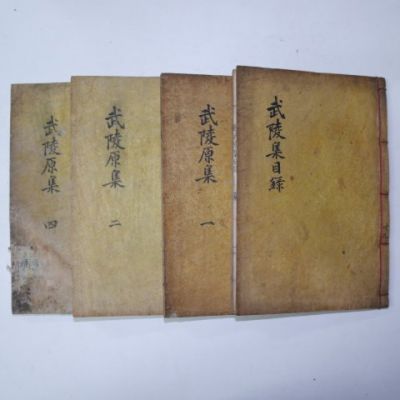 武陵集目録
武陵原集 一
武陵原集 二
武陵原集 四